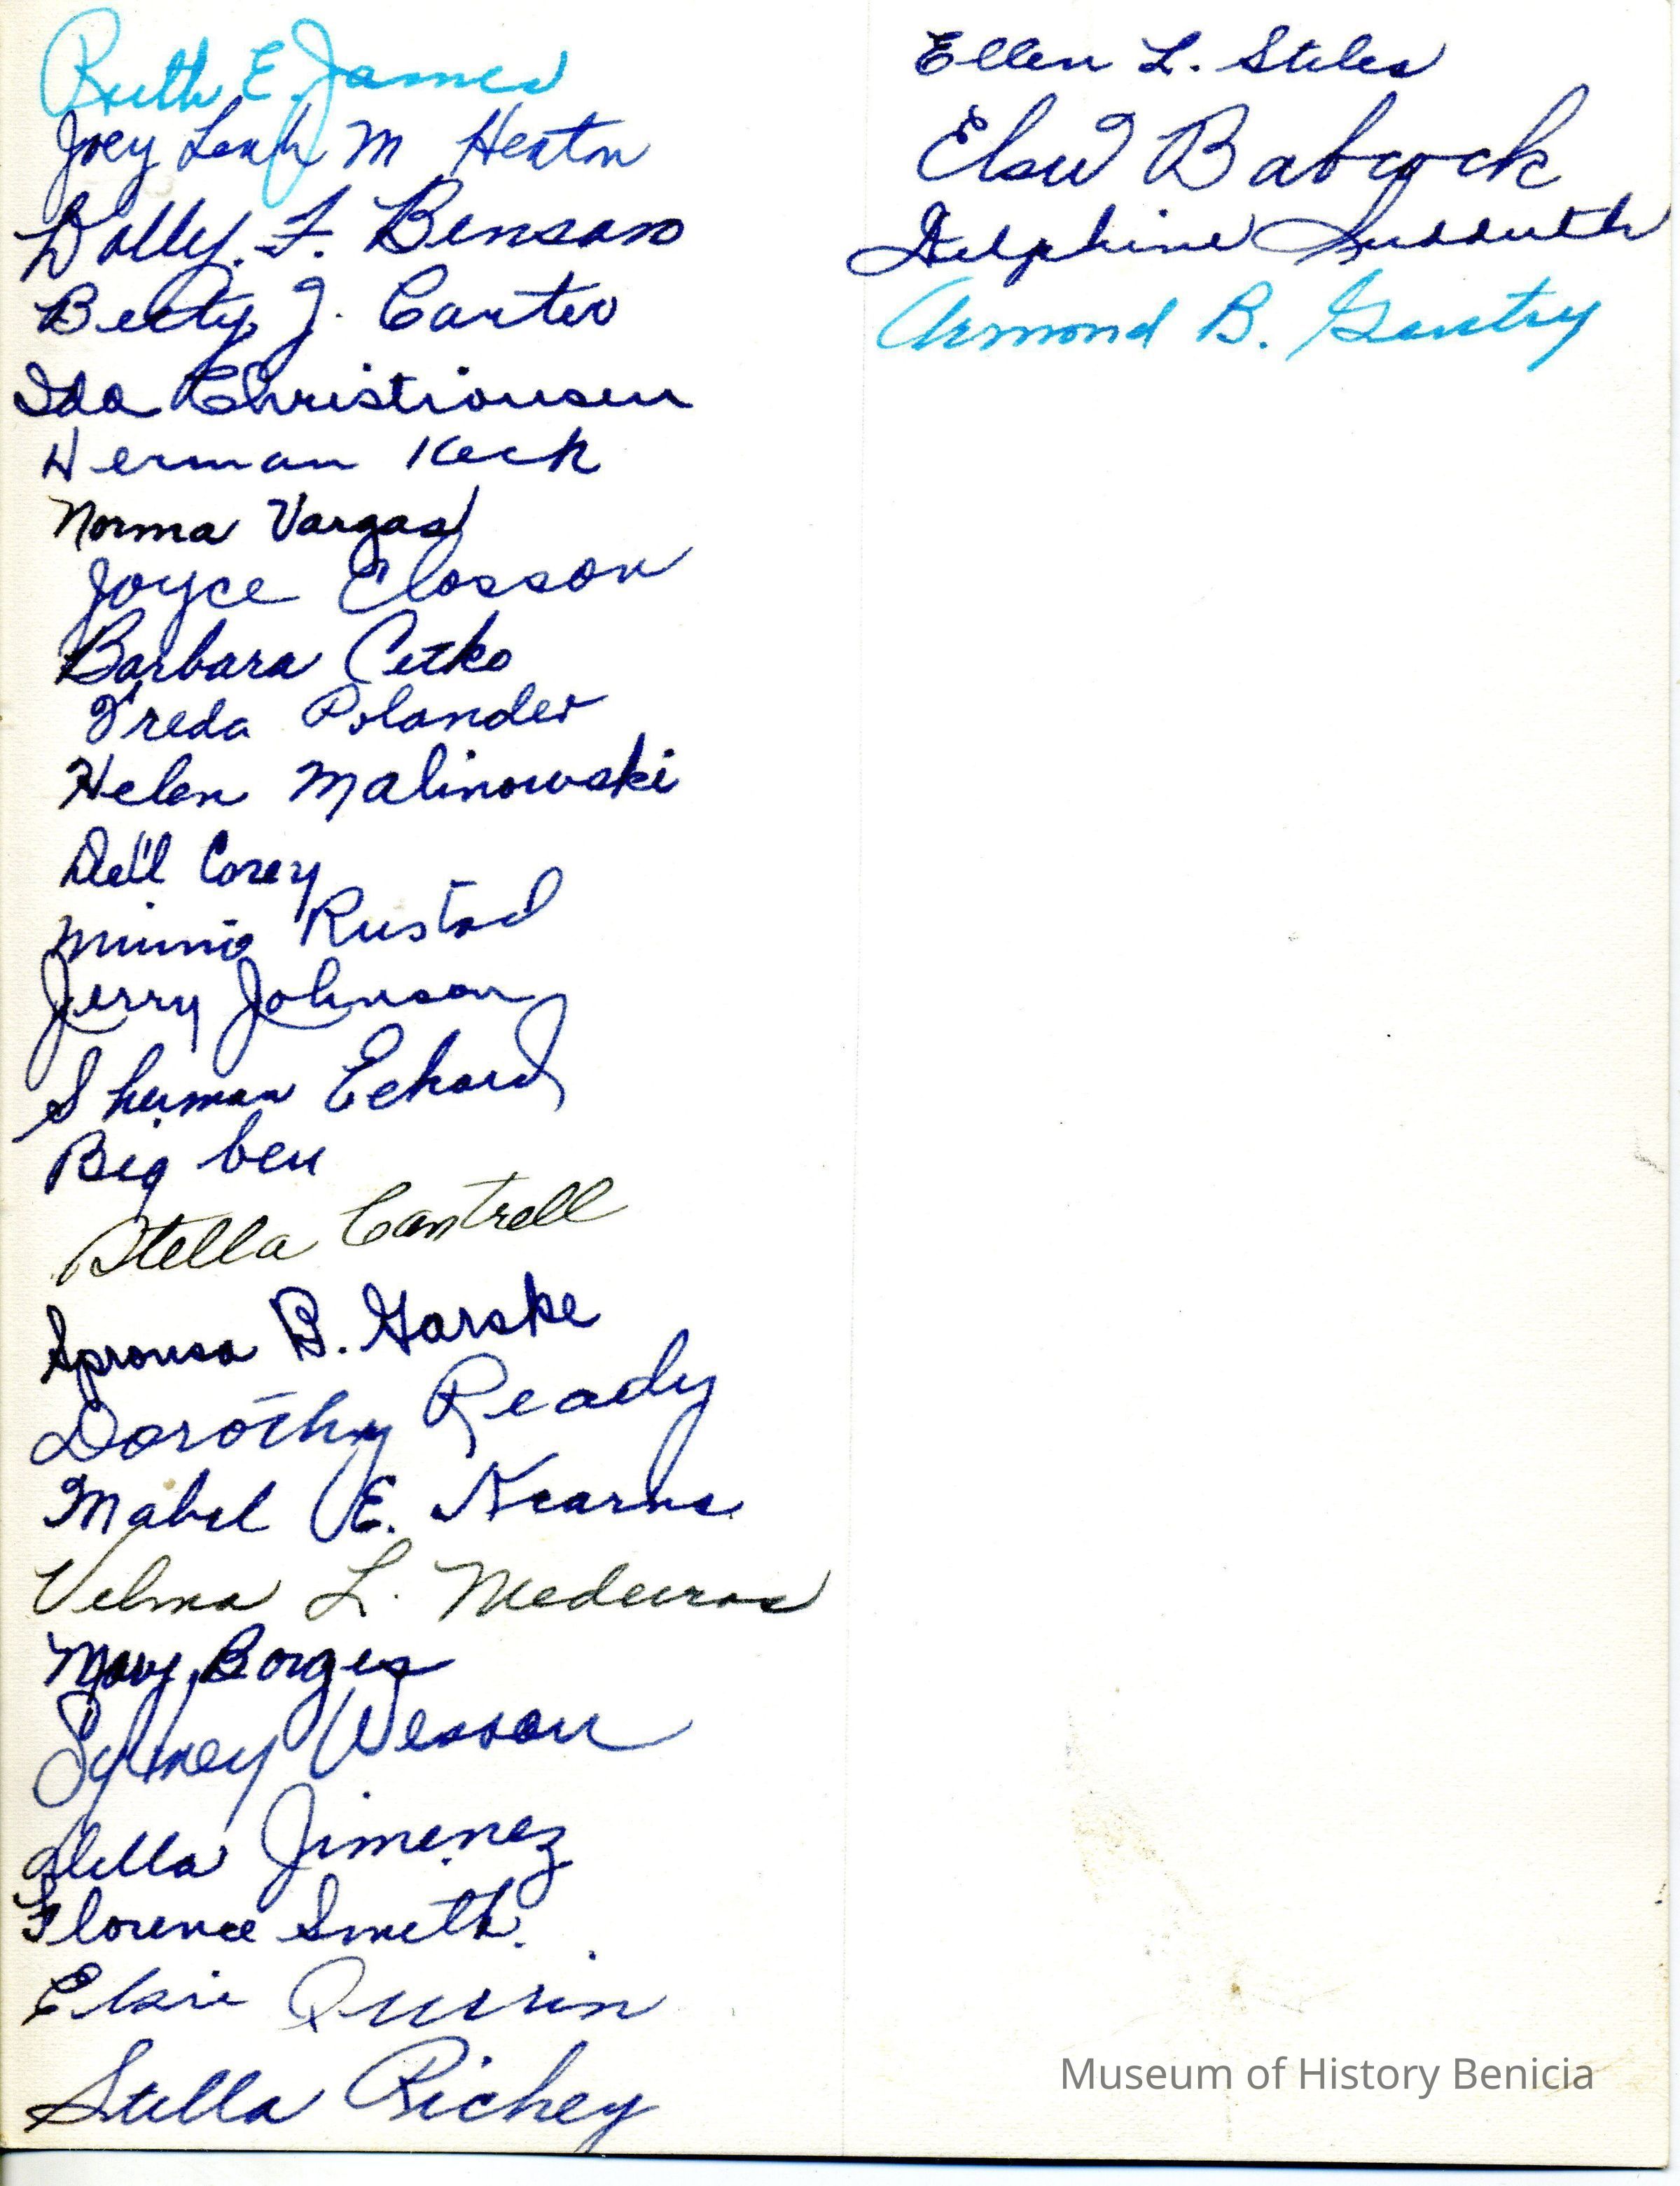 Ruth E. James
Joey Leah M Heaton
Dolly. F. Benson
Betty J. Carter
Ida Christiansen
Herman Keck
Norma Vargas
Joyce Closson
Barbara Cetko
Freda Polander
Helen Malinowski
Dell Corey
Minnie Rustad
Jerry Johnson
Sherman Eckard
Big ben
Stella Cantrell
B. Garske
Dorothy Ready
Mabel E. Kearns
Velma L. Medeiros
Mary Borges
Sydney Wesson
Della Jimenez
Florence Smith.
Elsie
Stella Richey
Ellen L. Stiles
Elsie Babcock
Delphine Sudduth
Armond B. Gentry
Museum of History Benicia